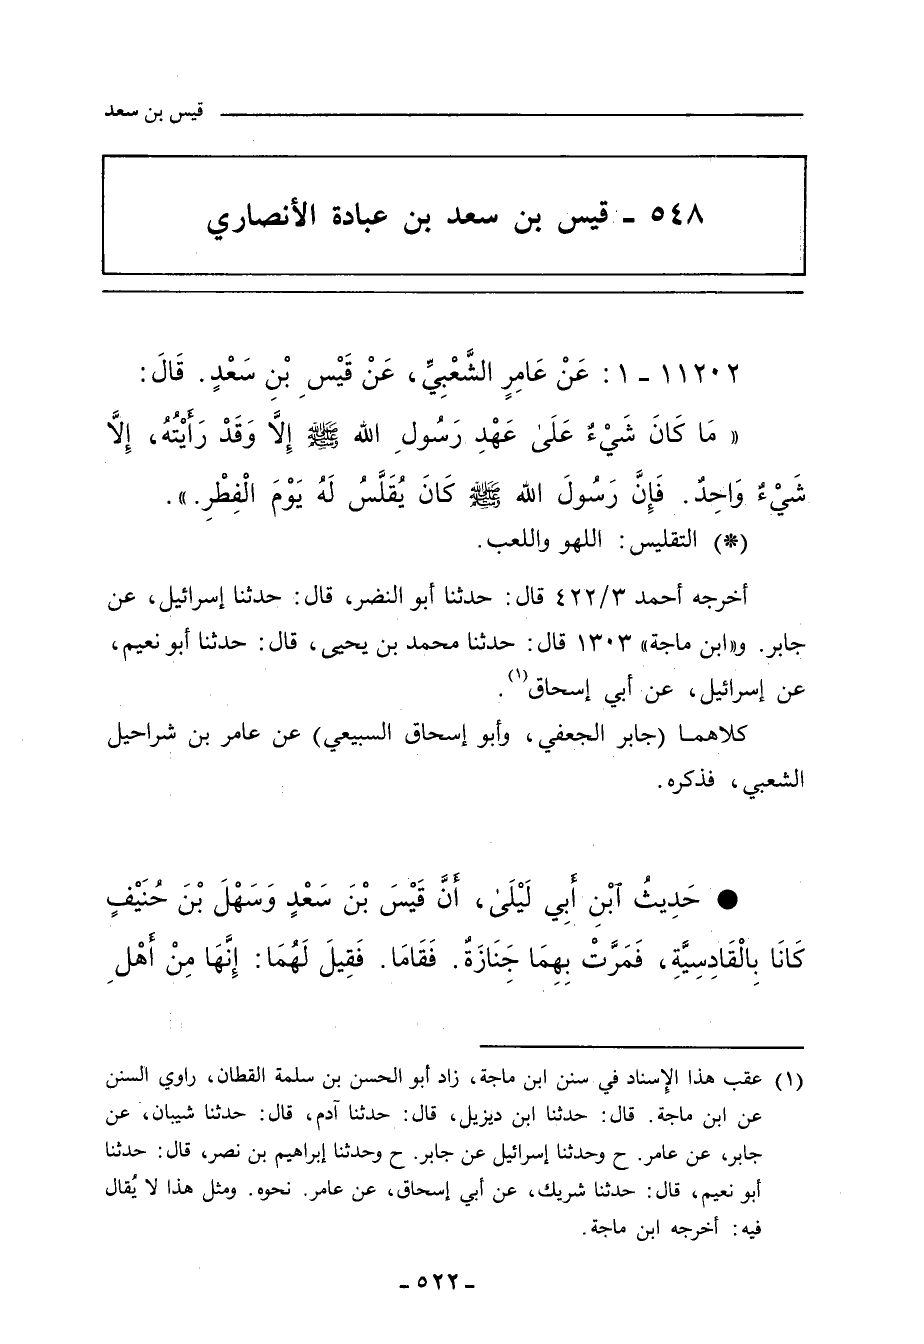 قيس بن سعد
٥٤٨ - قيس بن سعد بن عبادة الأنصاري
١١٢٠٢ - ١ : عَنْ عَامِرٍ الشَّعْبِيِّ، عَنْ قَيْسِ بْنِ سَعْدٍ. قَالَ:
« مَا كَانَ شَيْءٌ عَلَىٰ عَهْدِ رَسُولِ الله ﷺ إِلَّا وَقَدْ رَأَيْتُهُ، إِلَّا
شَيْءٌ وَاحِدٌ. فَإِنَّ رَسُولَ الله ﷺ كَانَ يُقَلَّسُ لَهُ يَوْمَ الْفِطْرِ. ».
(*) التقليس: اللهو واللعب.
أخرجه أحمد ٤٢٢/٣ قال: حدثنا أبو النضر، قال: حدثنا إسرائيل، عن
جابر. و«ابن ماجة» ١٣٠٣ قال: حدثنا محمد بن يحيى، قال: حدثنا أبو نعيم،
عن إسرائيل، عن أبي إسحاق(١).
كلاهما (جابر الجعفي، وأبو إسحاق السبيعي) عن عامر بن شراحيل
الشعبي، فذكره.
● حَدِيثُ ٱبْنِ أَبِي لَيْلَىٰ، أَنَّ قَيْسَ بْنَ سَعْدٍ وَسَهْلَ بْنَ حُنَيْفٍ
كَانَا بِالْقَادِسِيَّةِ، فَمَرَّتْ بِهِمَا جَنَازَةٌ. فَقَامَا. فَقِيلَ لَهُمَا: إِنَّهَا مِنْ أَهْلِ
(١) عقب هذا الإسناد في سنن ابن ماجة، زاد أبو الحسن بن سلمة القطان، راوي السنن
عن ابن ماجة. قال: حدثنا ابن ديزيل، قال: حدثنا آدم، قال: حدثنا شيبان، عن
جابر، عن عامر. ح وحدثنا إسرائيل عن جابر. ح وحدثنا إبراهيم بن نصر، قال: حدثنا
أبو نعيم، قال: حدثنا شريك، عن أبي إسحاق، عن عامر. نحوه. ومثل هذا لا يُقال
فيه: أخرجه ابن ماجة.
- ٥٢٢ -